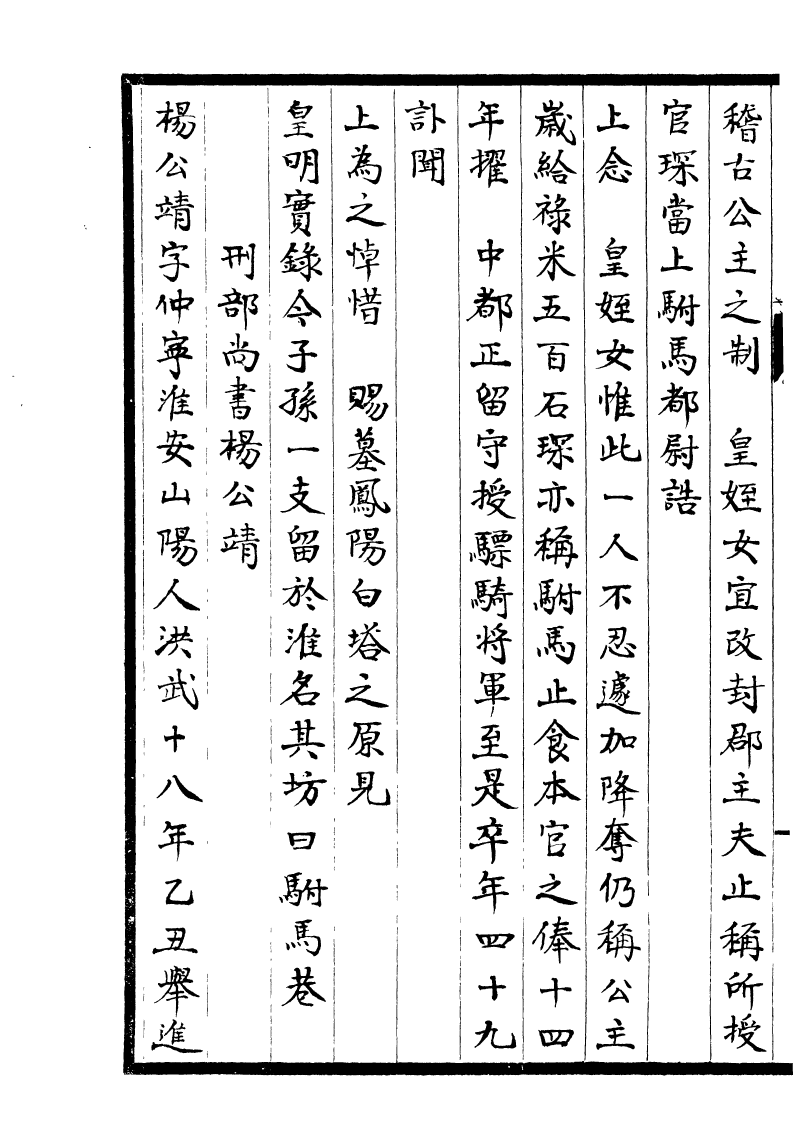 稽古公主之制　皇姪女宜改封郡主夫止稱所授
官琛當上駙馬都尉誥
上念　皇姪女惟此一人不忍遽加降奪仍稱公主
歲給祿米五百石琛亦稱駙馬止食本官之俸十四
年擢　中都正留守授驃騎將軍至是卒年四十九
訃聞
上為之悼惜　賜墓鳳陽白塔之原見
皇明實錄今子孫一支留於淮名其坊曰駙馬巷
刑部尚書楊公靖
楊公靖字仲寧淮安山陽人洪武十八年乙丑舉進